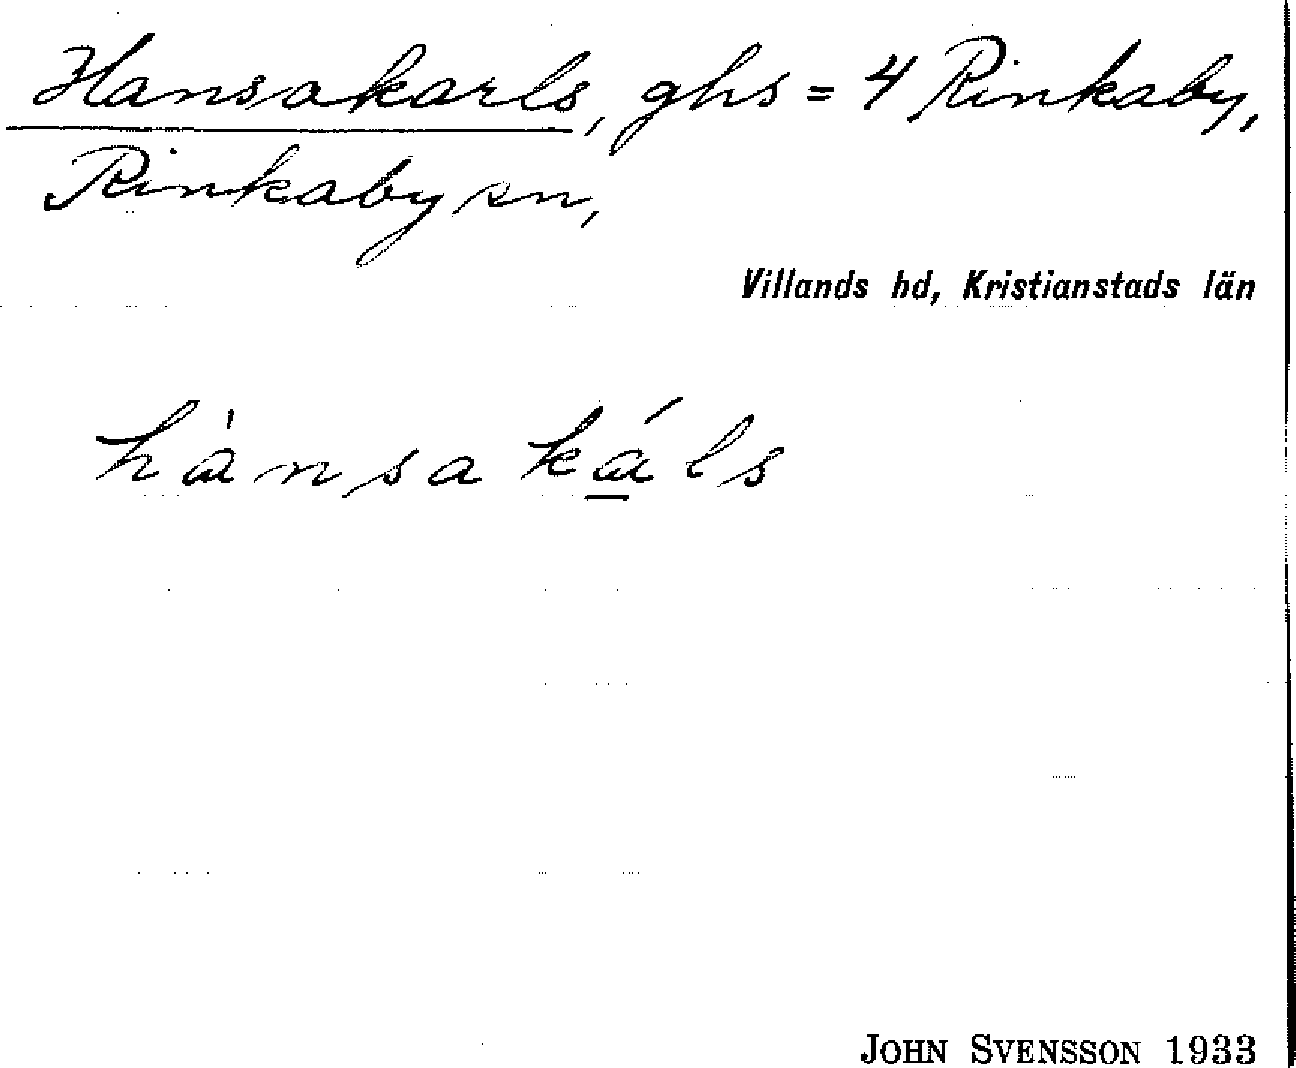 Hansakarls, ghs = 4 Rinkaby,
Rinkaby sn,
Villands hd, Kristianstads län
hànsa káls
JOHN SVENSSON 1933